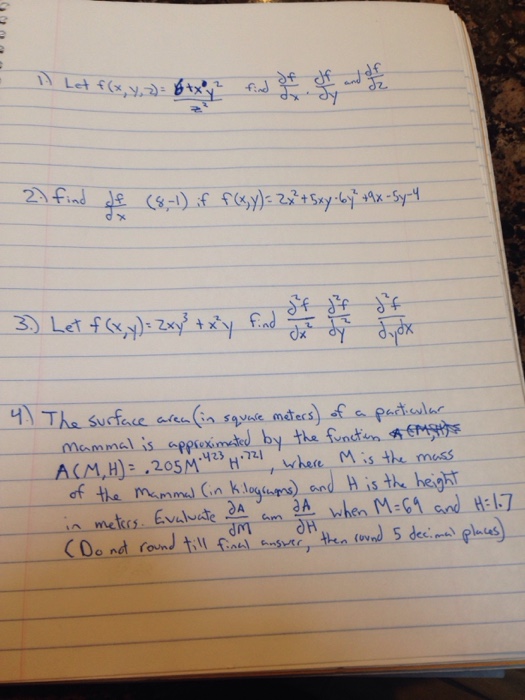 1) Let f(x, y, z) = 6+x⁸y² / z² find ∂f/∂x, ∂f/∂y and ∂f/∂z
2.) find ∂f/∂x (8,-1) if f(x,y) = 2x²+5xy-6y²+9x-5y-4
3.) Let f(x,y) = 2xy³ + x²y find ∂²f/∂x² ∂²f/∂y² ∂²f/∂y∂x
4.) The surface area (in square meters) of a particular
mammal is approximated by the function
A(M,H) = .205M^.423 H^.721, where M is the mass
of the mammal (in kilograms) and H is the height
in meters. Evaluate ∂A/∂M am ∂A/∂H when M=69 and H=1.7
(Do not round till final answer, then round 5 decimal places)